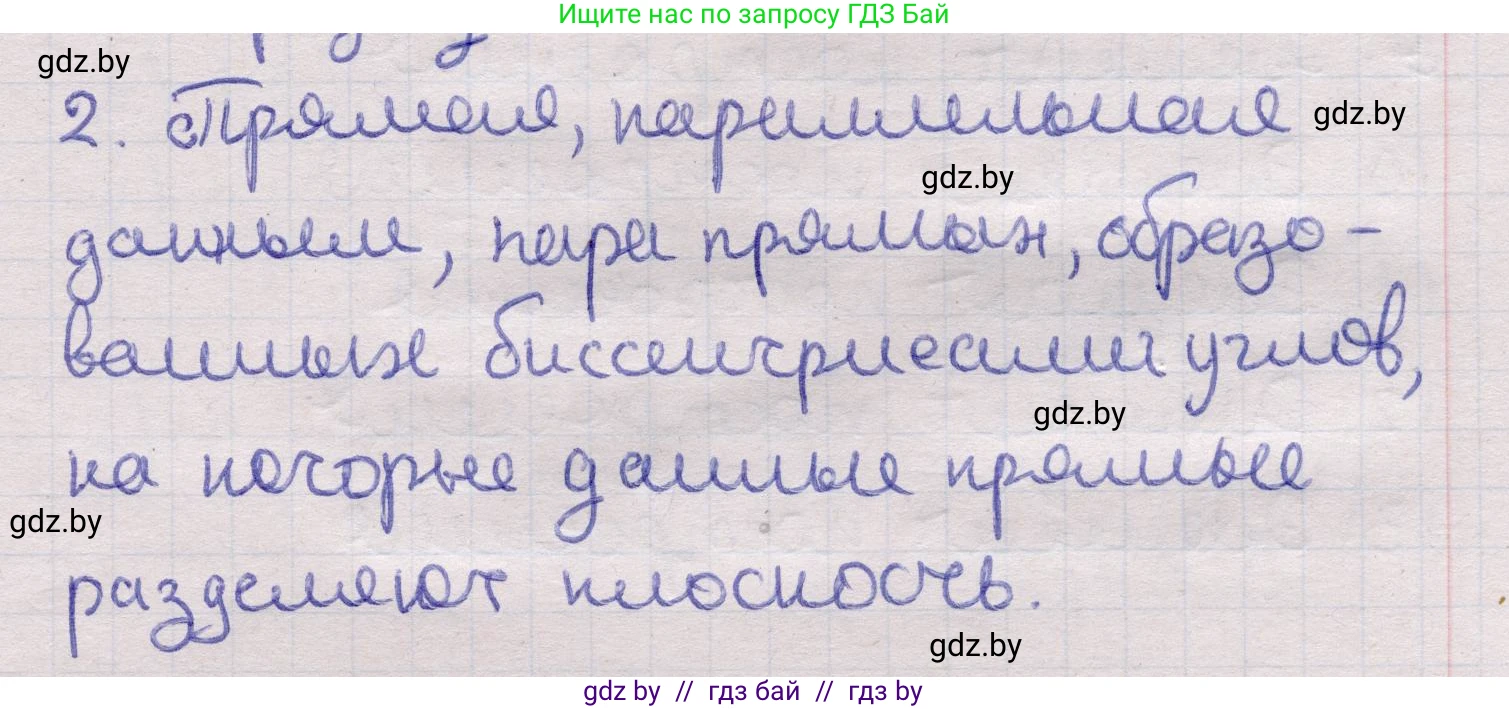 Ищите нас по запросу ГДЗ Бай
gdz.by
2. Прямая, параллельная
gdz.by
gdz.by
данным, пара прямых, образо-
ванных биссектрисами углов,
gdz.by
на которые данные прямые
gdz.by
разделяют плоскость.
gdz.by
gdz by // гдз бай // гдз by